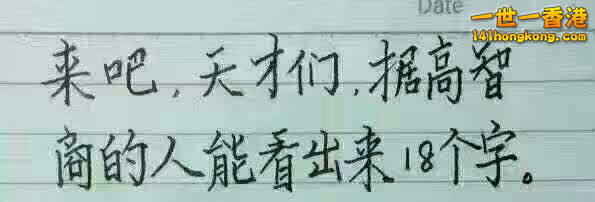 Date
一世一香港
141hongkong.com
来吧,天才们,据高智
商的人能看出来18个字。